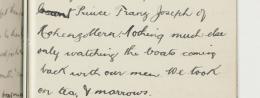 Prince Franz Joseph of
Hohenzollern. Nothing much else
only watching the boats coming
back with our men. We took
on tea, & marrows.